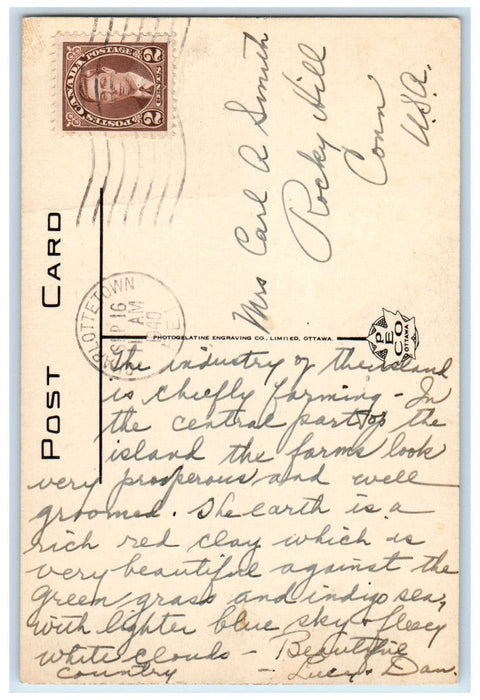 CANADA POSTAGE
2 CENTS 2
POSTES CANADA
POST CARD
CHARLOTTETOWN
SEP 16
AM
1940
P.E.I.
Mrs Carl A Smith
Rocky Hill
Conn
U.S.A.
PHOTOGELATINE ENGRAVING CO., LIMITED, OTTAWA.
PECO
OTTAWA
The industry of the island
is chiefly farming - In
the central part of the
island the farms look
very prosperous and well
groomed. The earth is a
rich red clay which is
very beautiful against the
green grass and indigo sea,
with lighter blue sky & fleecy
white clouds - Beautiful
country - Lucy & Dan.